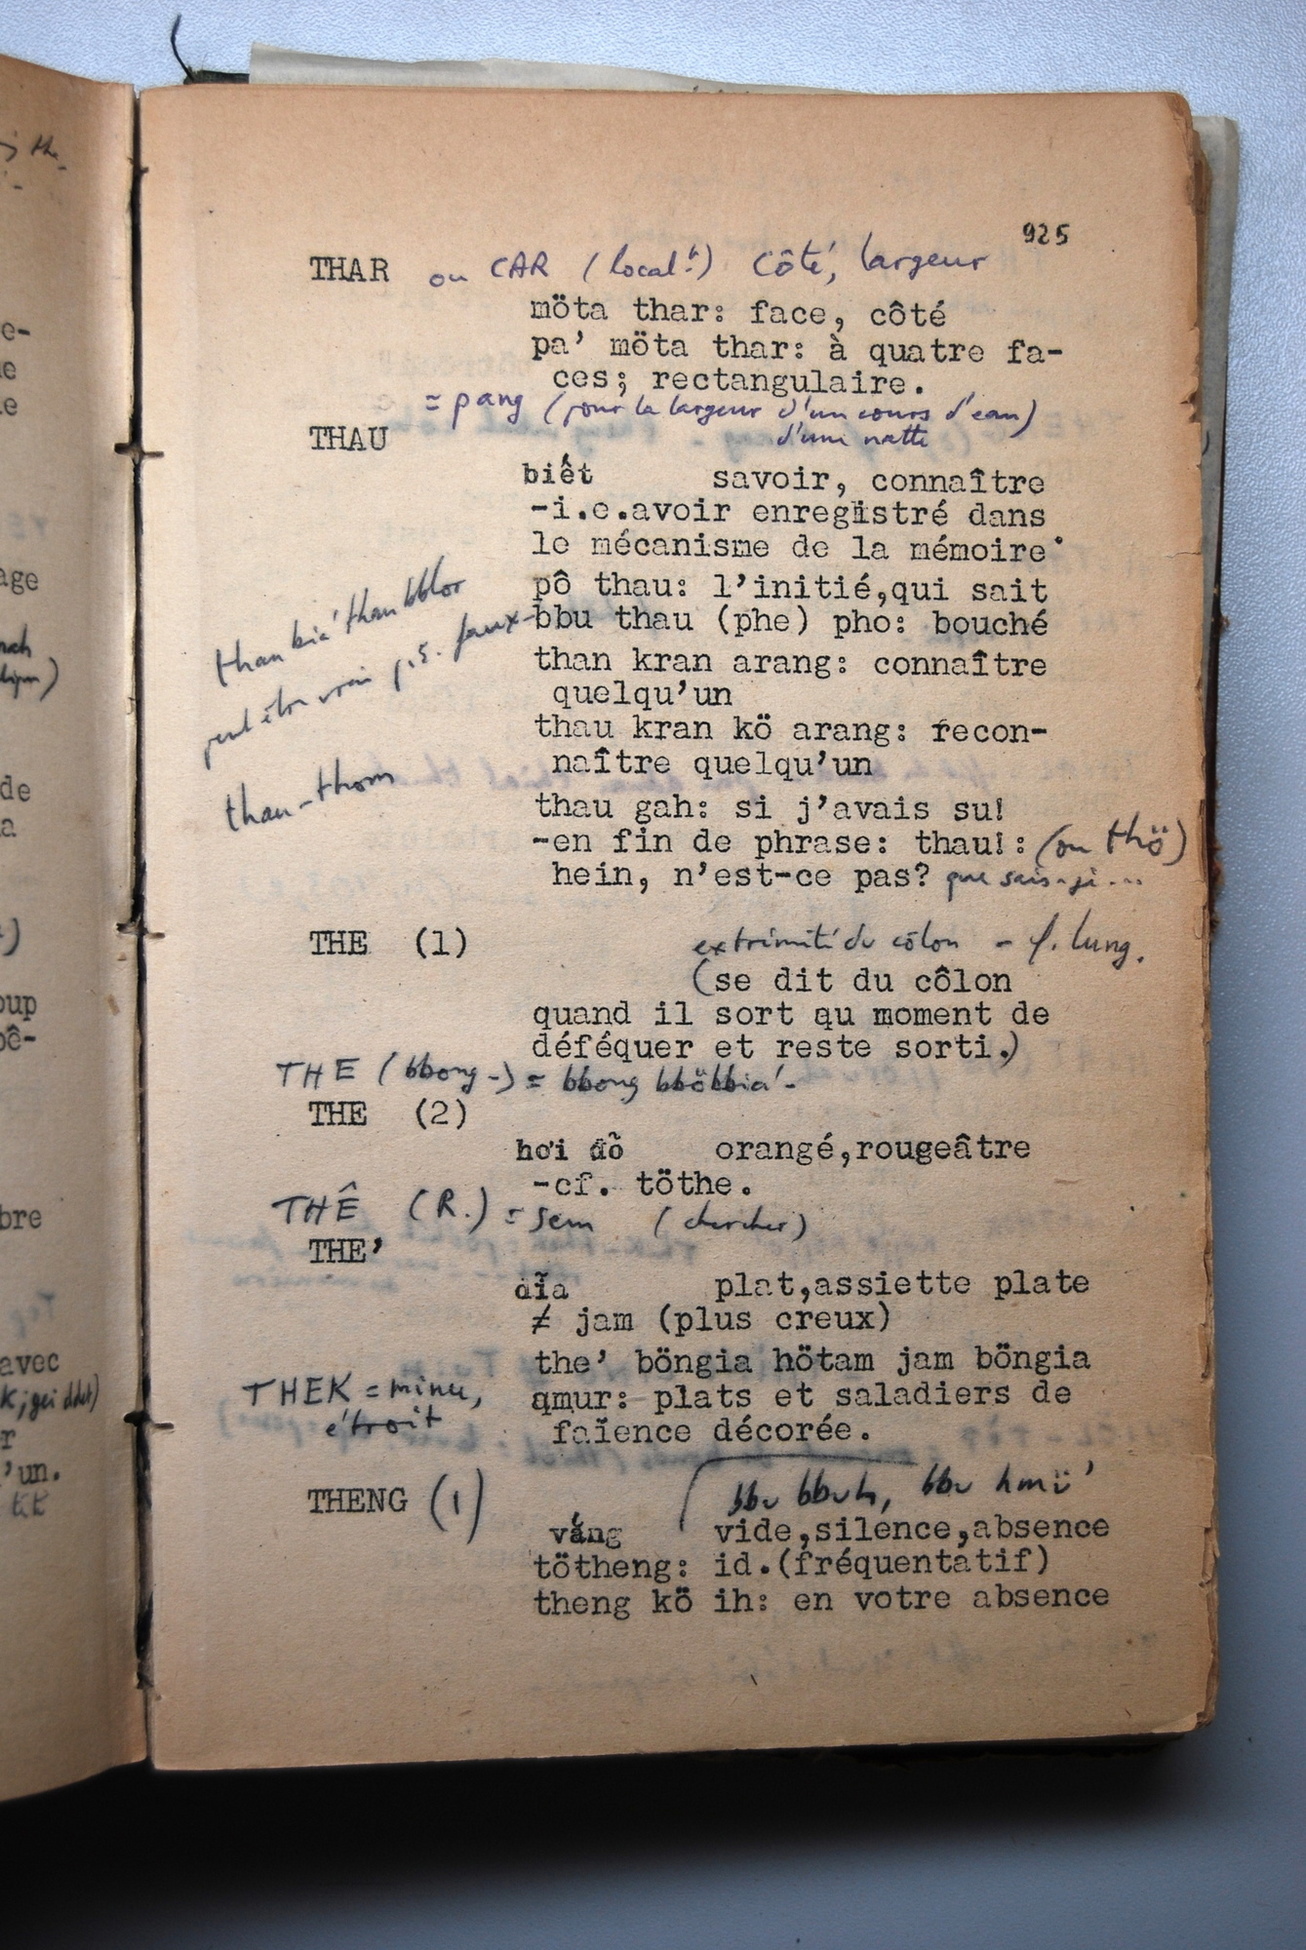 925
THAR ou CAR (local.t) côté, largeur
möta thar: face, côté
pa' möta thar: à quatre fa-
ces; rectangulaire.
= pang (pour la largeur d'un cours d'eau)
d'une natte
THAU
biết savoir, connaître
-i.e.avoir enregistré dans
le mécanisme de la mémoire.
pô thau: l'initié,qui sait
thau bia' thau bblor
peut être vrai faux
bbu thau (phe) pho: bouché
than kran arang: connaître
quelqu'un
thau kran kö arang: recon-
naître quelqu'un
thau-thom
thau gah: si j'avais su!
-en fin de phrase: thau!: (ou thö)
hein, n'est-ce pas? que sais-je...
THE (1) extrémité du côlon - f. lung.
(se dit du côlon
quand il sort qu moment de
déféquer et reste sorti.)
THE (bbong -) = bbong bböbbia' -
THE (2)
hơi đỏ orangé,rougeâtre
-cf. töthe.
THÊ (R.) = sem (chercher)
THE'
dĩa plat,assiette plate
≠ jam (plus creux)
the' böngia hötam jam böngia
THEK = minu,
étroit
qmur: plats et saladiers de
faïence décorée.
THENG (1) bbu bbuh, bbu hmü'
váng vide,silence,absence
tötheng: id.(fréquentatif)
theng kö ih: en votre absence
avec
'un.
age
de
bre
oup